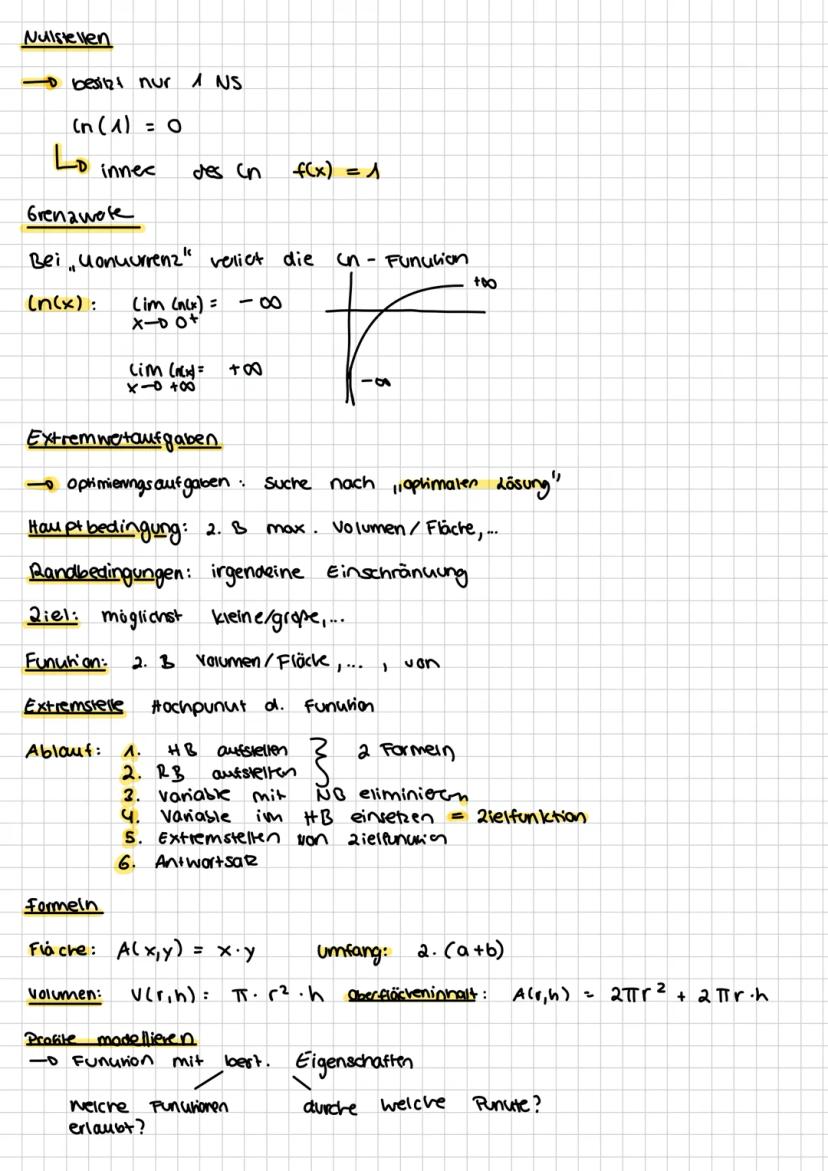 Nullstellen
→ besitzt nur 1 NS
ln(1) = 0
↳ innen des ln f(x) = 1
Grenzwerte
Bei „Konkurrenz“ verliert die ln - Funktion
ln(x): lim ln(x) = -∞
x→0⁺
+∞
lim ln(x) = +∞
x→+∞
-∞
Extremwertaufgaben
→ Optimierungsaufgaben: Suche nach „optimalen Lösung“
Hauptbedingung: z. B max. Volumen / Fläche, ...
Randbedingungen: irgendeine Einschränkung
Ziel: möglichst kleine/große, ...
Funktion: z. B Volumen / Fläche, ... , von
Extremstelle Hochpunkt d. Funktion
Ablauf: 1. HB aufstellen } 2 Formeln
2. RB aufstellen
3. Variable mit NB eliminieren
4. Variable im HB einsetzen = Zielfunktion
5. Extremstellen von Zielfunktion
6. Antwortsatz
Formeln
Fläche: A(x,y) = x·y Umfang: 2·(a+b)
Volumen: V(r,h) = π·r²·h Oberflächeninhalt: A(r,h) = 2πr² + 2πr·h
Profile modellieren
→ Funktion mit best. Eigenschaften
Welche Funktionen durche welche Punkte?
erlaubt?